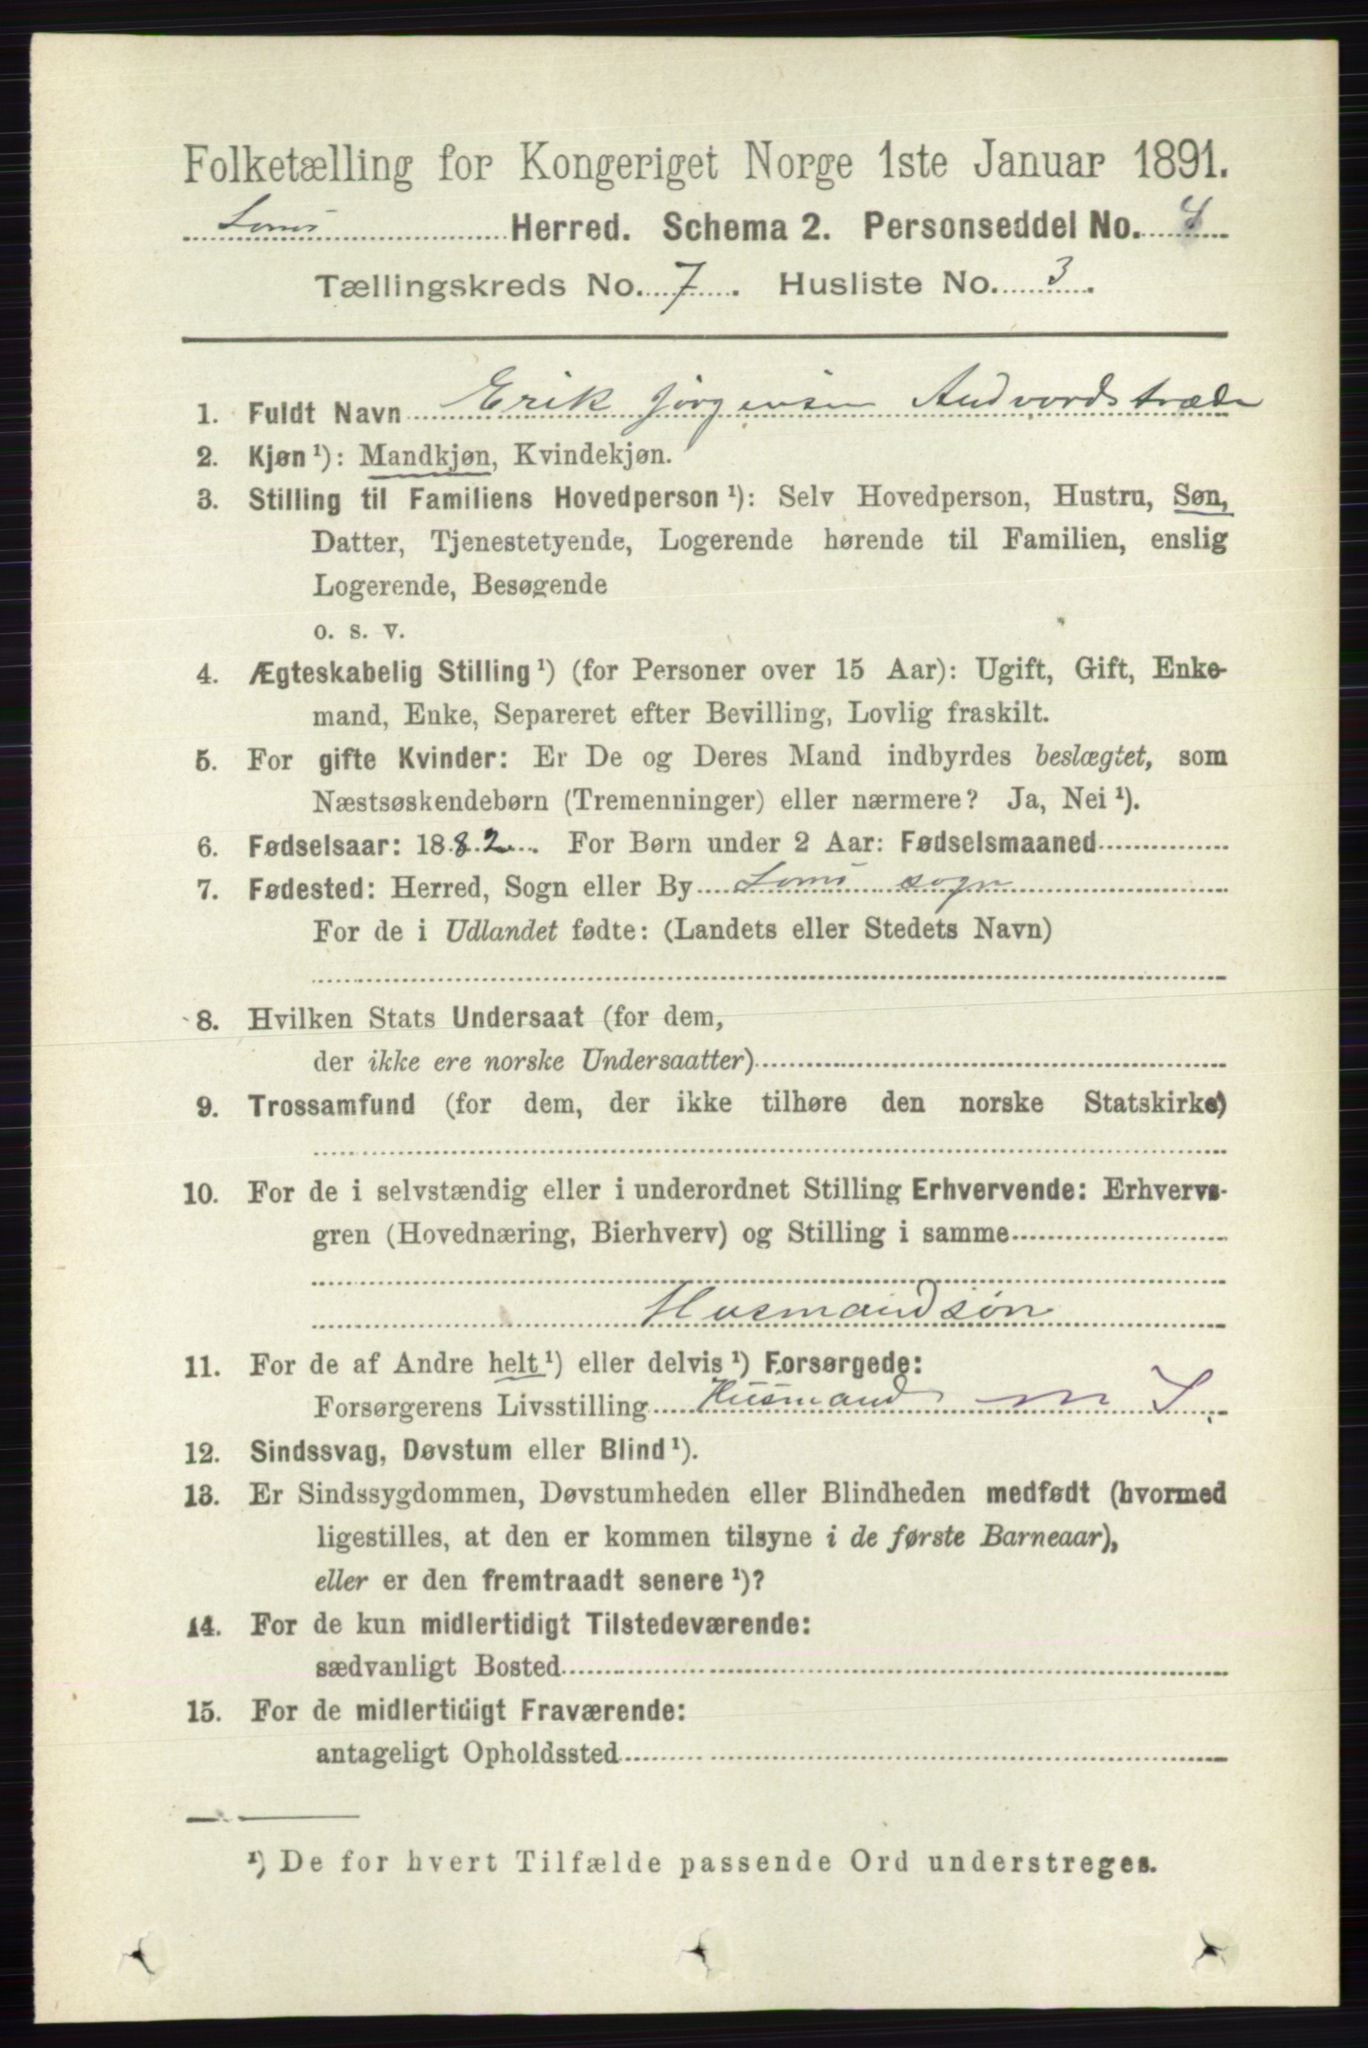 Folketælling for Kongeriget Norge 1ste Januar 1891.
Loms Herred. Schema 2. Personseddel No.
Tællingskreds No. 7. Husliste No. 3.
1. Fuldt Navn Erik Jørgensen Andvordstræde
2. Kjøn ¹): Mandkjøn, Kvindekjøn.
3. Stilling til Familiens Hovedperson ¹): Selv Hovedperson, Hustru, Søn,
Datter, Tjenestetyende, Logerende hørende til Familien, enslig
Logerende, Besøgende
o. s. v.
4. Ægteskabelig Stilling ¹) (for Personer over 15 Aar): Ugift, Gift, Enke-
mand, Enke, Separeret efter Bevilling, Lovlig fraskilt.
5. For gifte Kvinder: Er De og Deres Mand indbyrdes beslægtet, som
Næstsøskendebørn (Tremenninger) eller nærmere? Ja, Nei ¹).
6. Fødselsaar: 1882. For Børn under 2 Aar: Fødselsmaaned
7. Fødested: Herred, Sogn eller By Loms sogn
For de i Udlandet fødte: (Landets eller Stedets Navn)
8. Hvilken Stats Undersaat (for dem,
der ikke ere norske Undersaatter)
9. Trossamfund (for dem, der ikke tilhøre den norske Statskirke)
10. For de i selvstændig eller i underordnet Stilling Erhvervende: Erhvervs-
gren (Hovednæring, Bierhverv) og Stilling i samme
Husmandsøn
11. For de af Andre helt ¹) eller delvis ¹) Forsørgede:
Forsørgerens Livsstilling Husmand m
12. Sindssvag, Døvstum eller Blind ¹).
13. Er Sindssygdommen, Døvstumheden eller Blindheden medfødt (hvormed
ligestilles, at den er kommen tilsyne i de første Barneaar),
eller er den fremtraadt senere ¹)?
14. For de kun midlertidigt Tilstedeværende:
sædvanligt Bosted
15. For de midlertidigt Fraværende:
antageligt Opholdssted
¹) De for hvert Tilfælde passende Ord understreges.